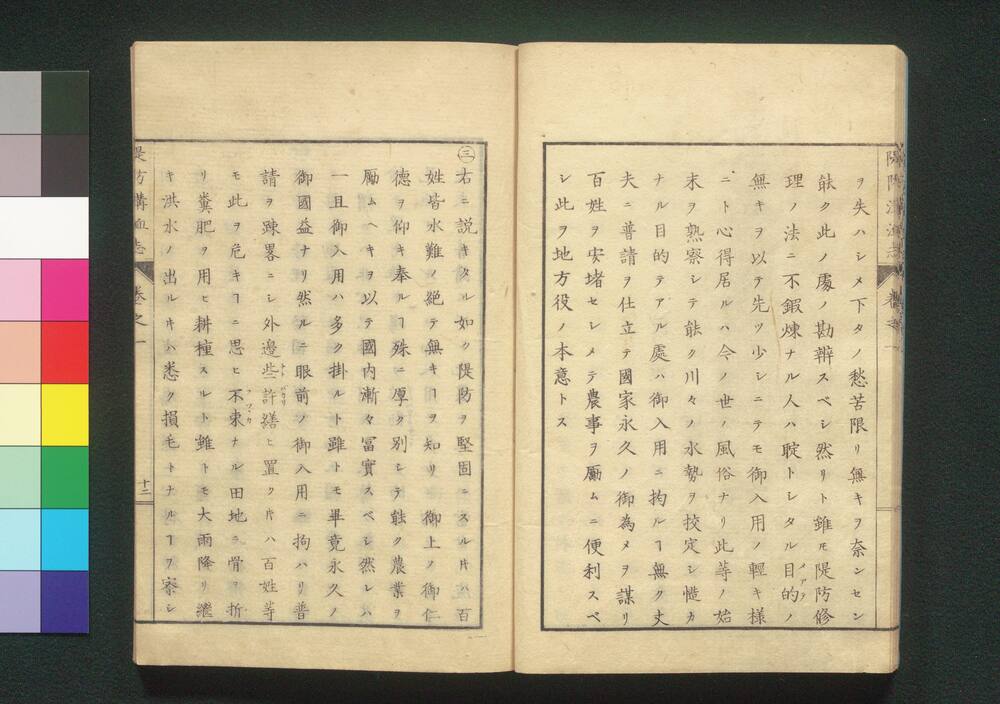 ヲ失ハシメ下タノ愁苦限リ無キヲ奈ンセン
能ク此ノ處ノ勘辨スベシ然リト雖モ隄防修
理ノ法ニ不鍛煉ナル人ハ聢トシタル目的ノ
メアテ
無キヲ以テ先ツ少シニテモ御入用ノ輕キ様
ニト心得居ルハ今ノ世ノ風俗ナリ此等ノ始
末ヲ熟察シテ能ク川々ノ水勢ヲ挍定シ慥カ
ナル目的テアル處ハ御入用ニ拘ルヿ無ク丈
夫ニ普請ヲ仕立テ國家永久ノ御為メヲ謀リ
百姓ヲ安堵セシメテ農事ヲ勵ムニ便利スベ
シ此ヲ地方役ノ本意トス
㊂右ニ説キタル如ク隄防ヲ堅固ニスル片ハ百
姓皆水難ノ絶テ無キヿヲ知リ御上ノ御仁
德ヲ仰キ奉ルヿ殊ニ厚ク別シテ能ク農業ヲ
勵ムヘキヲ以テ國内漸々冨實スベシ然レハ
一旦御入用ハ多ク掛ルト雖トモ畢竟永久ノ
御國益ナリ然ルニ眼前ノ御入用ニ拘ハリ普
請ヲ疎畧ニシ外邊些許繕ヒ置ク片ハ百姓等
モ此ヲ危キヿニ思ヒ不束ナル田地ニ骨ヲ折
リ糞肥ヲ用ヒ耕種スルト雖トモ大雨降リ繼
キ洪水ノ出ルキハ悉ク損毛トナルヿヲ察シ
卷之一
十二